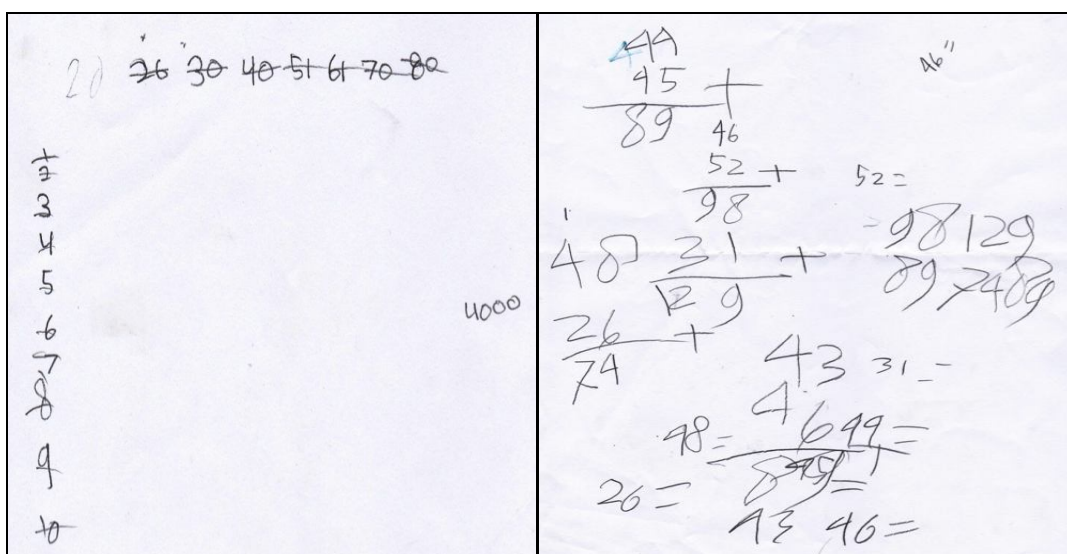 20 26 30 40 51 61 70 80
1
2
3
4
5
6
7
8
9
10
4000
44
45 +
89
46"
46
52 +
98
52 =
48 31 +
129
= 98 129
89 74 89
26 +
74
43 31 =
48 =
26 =
43 46 =